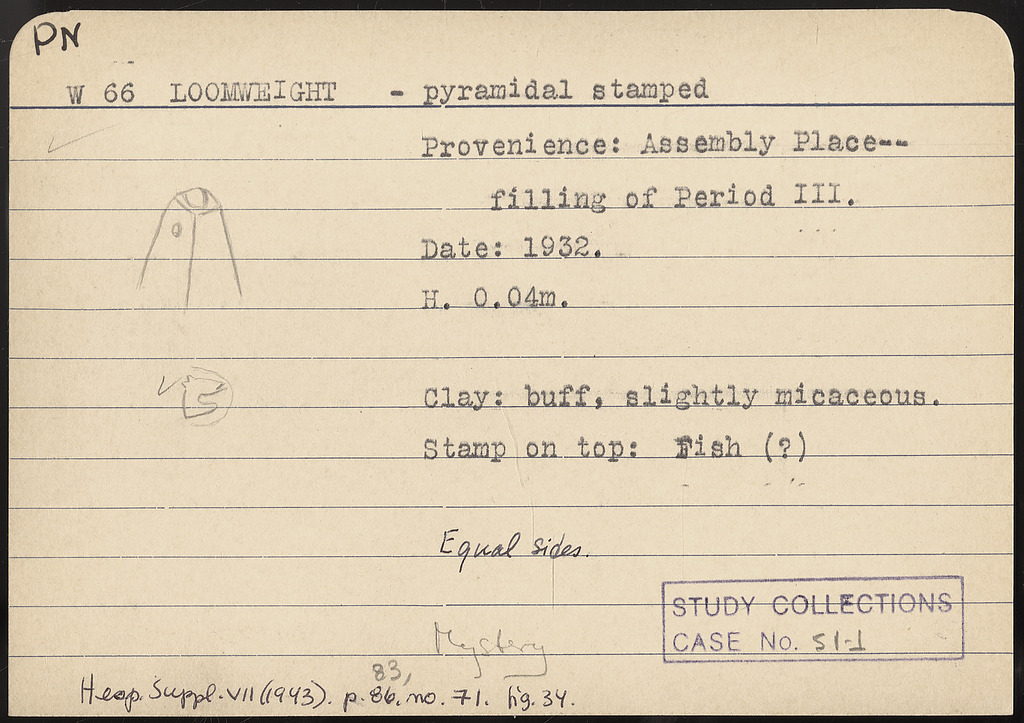 PN
W 66 LOOMWEIGHT - pyramidal stamped
Provenience: Assembly Place--
filling of Period III.
Date: 1932.
H. 0.04m.
Clay: buff, slightly micaceous.
Stamp on top: Fish (?)
Equal sides.
STUDY COLLECTIONS
CASE No. S1-1
Mystery
83,
Hesp. Suppl. VII (1943). p. 86, no. 71. fig. 34.